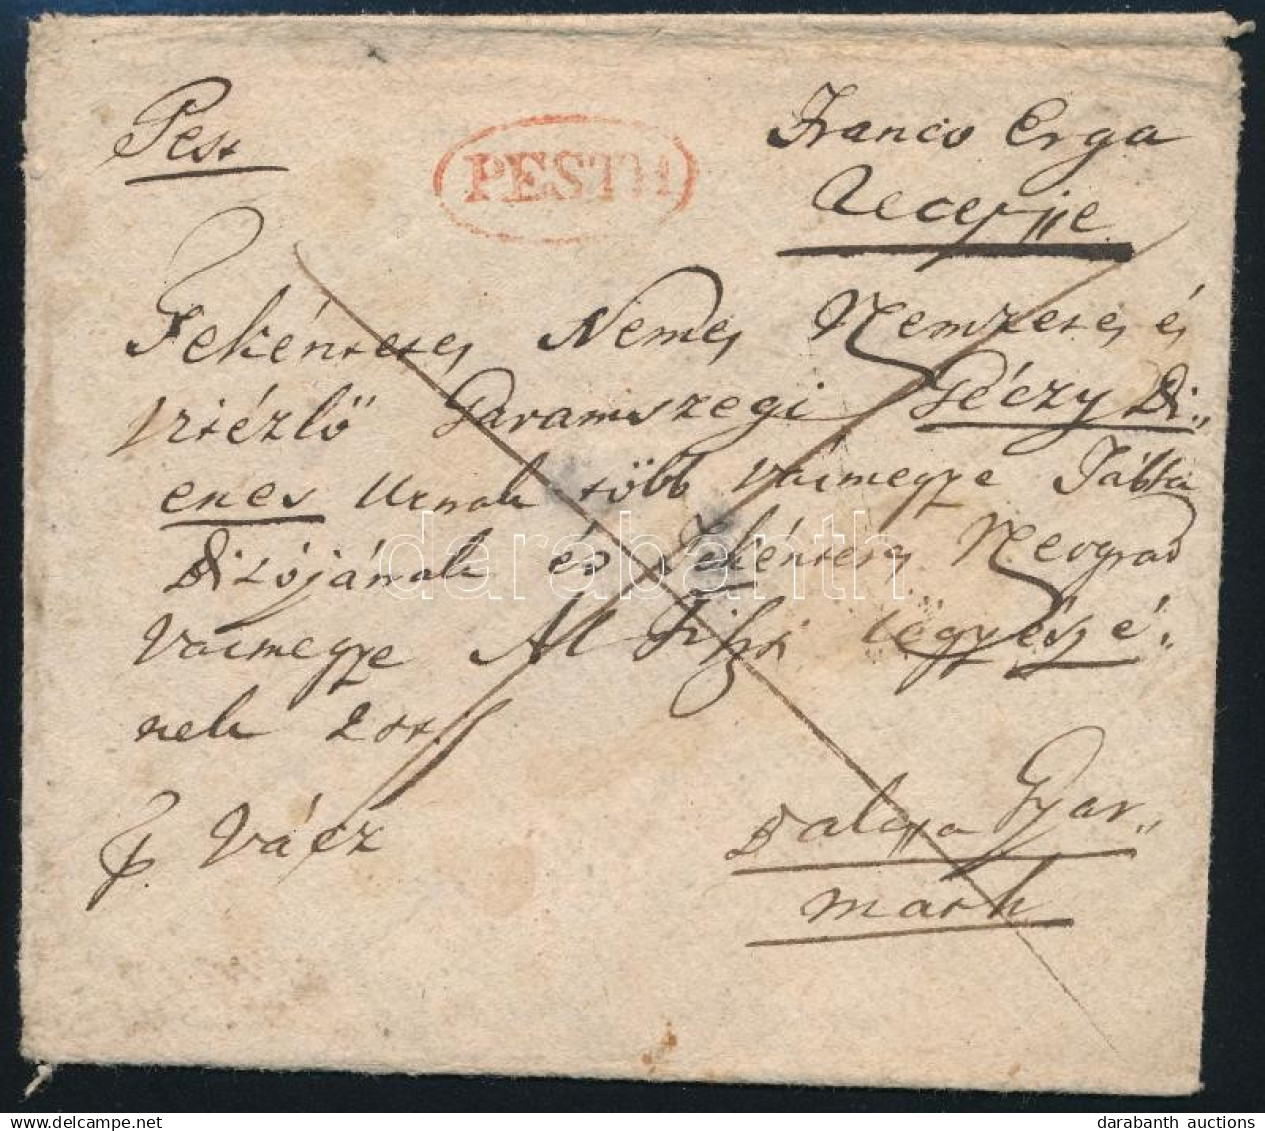 Pest
PESTH
Franco Erga
Recepisse
Tekéntetes Nemes Nemzetes és
Vitézlő Garamszegi Géczy Di„
enes Urnak több Vármegye Tábla
Birójának és Tekéntetes Neograd
Vármegye Al Fiskus Ügyészé„
nek
p Vácz
Balassa Gyar„
math
darabanth
darabanth auctions